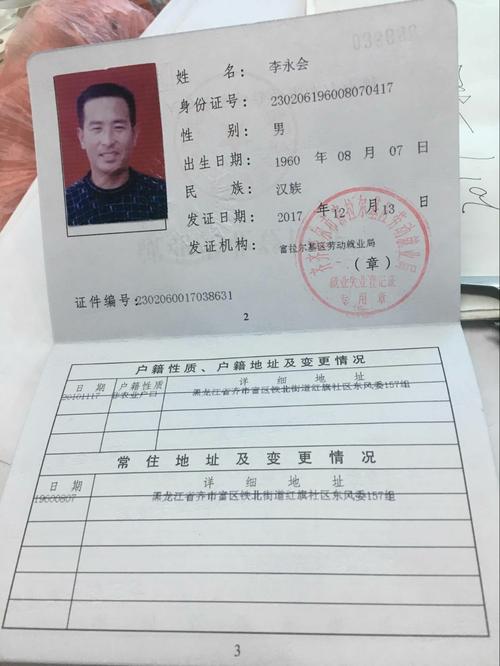 姓 名： 李永会
身份证号： 230206196008070417
性 别： 男
出生日期： 1960 年 08 月 07 日
民 族： 汉族
发证日期： 2017 年 12 月 13 日
发证机构： 富拉尔基区劳动就业局
（章）
就业失业登记证
专用章
证件编号：2302060017038631
2
户籍性质、户籍地址及变更情况
日 期 户籍性质 详 细 地 址
20101117 非农业户口 黑龙江省齐市富区铁北街道红旗社区东风委157组
常 住 地 址 及 变 更 情 况
日 期 详 细 地 址
19600807 黑龙江省齐市富区铁北街道红旗社区东风委157组
3